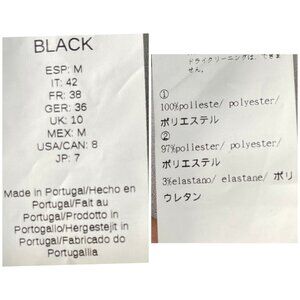 BLACK
ESP: M
IT: 42
FR: 38
GER: 36
UK: 10
MEX: M
USA/CAN: 8
JP: 7
Made in Portugal/Hecho en
Portugal/Fait au
Portugal/Prodotto in
Portogallo/Hergestejit in
Portugal/Fabricado do
Portugallia
ドライクリーニングは、できま
せん。
①
100%polieste/ polyester/
ポリエステル
②
97%poliester/ polyester/
ポリエステル
3%elastano/ elastane/ ポリ
ウレタン